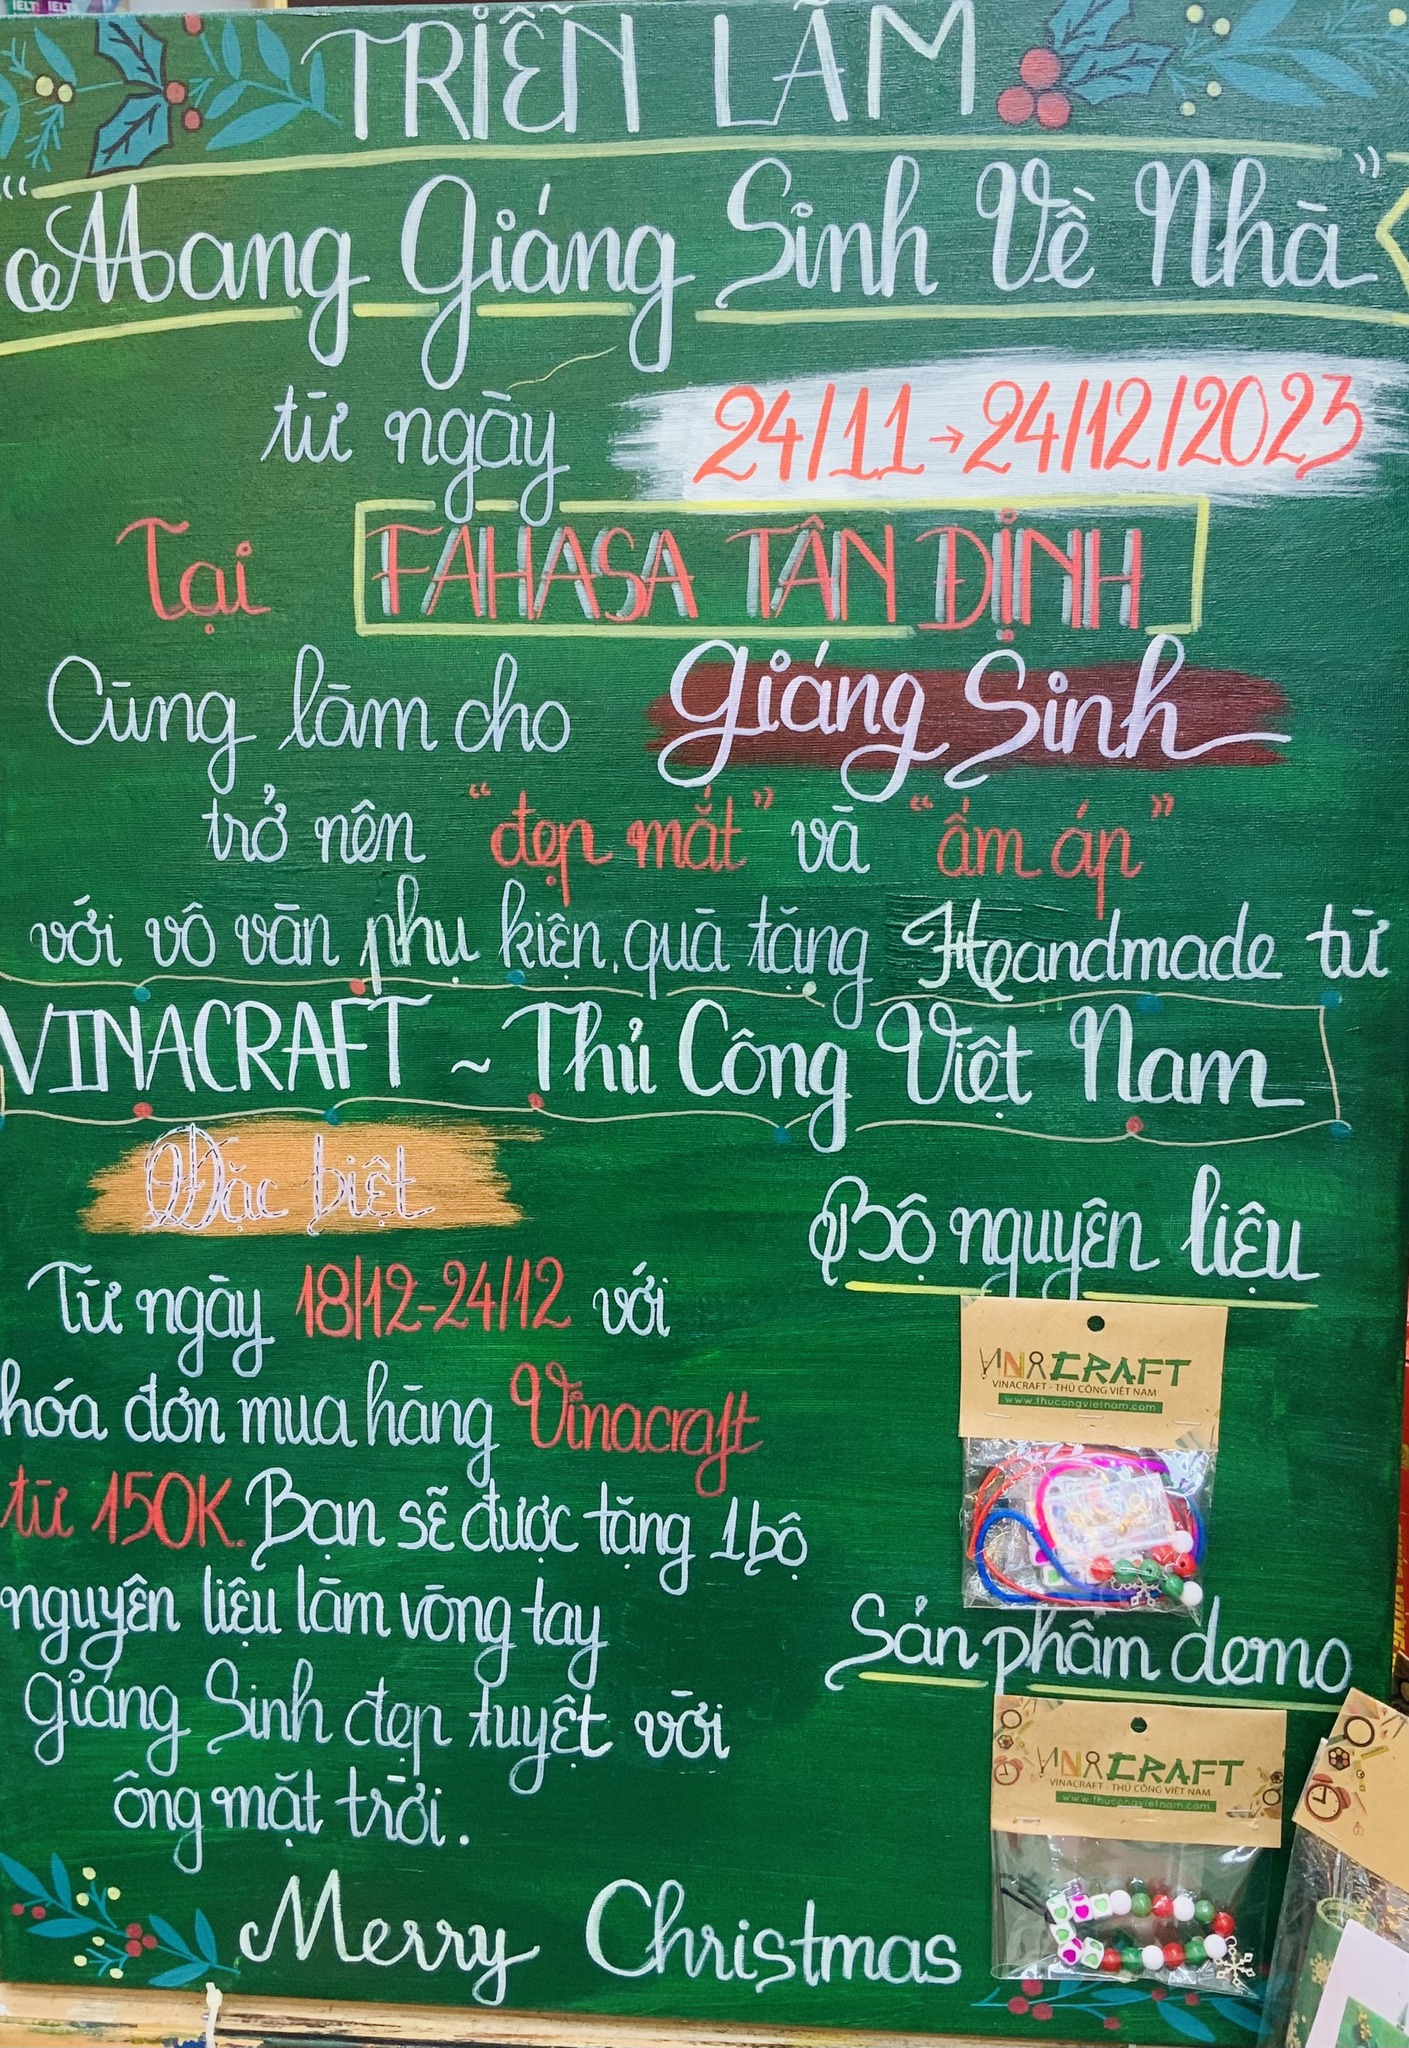 IELTS IELTS
TRIỄN LÃM
"Mang Giáng Sinh Về Nhà"
từ ngày 24/11 → 24/12/2023
Tại FAHASA TÂN ĐỊNH
Cùng làm cho Giáng Sinh
trở nên "đẹp mắt" và "ấm áp"
với vô vàn phụ kiện, quà tặng Handmade từ
VINACRAFT ~ Thủ Công Việt Nam
Đặc biệt
Từ ngày 18/12-24/12 với
hóa đơn mua hàng Vinacraft
từ 150K. Bạn sẽ được tặng 1 bộ
nguyên liệu làm vòng tay
Giáng Sinh đẹp tuyệt vời
ông mặt trời.
Bộ nguyên liệu
VINACRAFT
VINACRAFT - THỦ CÔNG VIỆT NAM
www.thucongvietnam.com
Sản phẩm demo
VINACRAFT
VINACRAFT - THỦ CÔNG VIỆT NAM
www.thucongvietnam.com
Merry Christmas